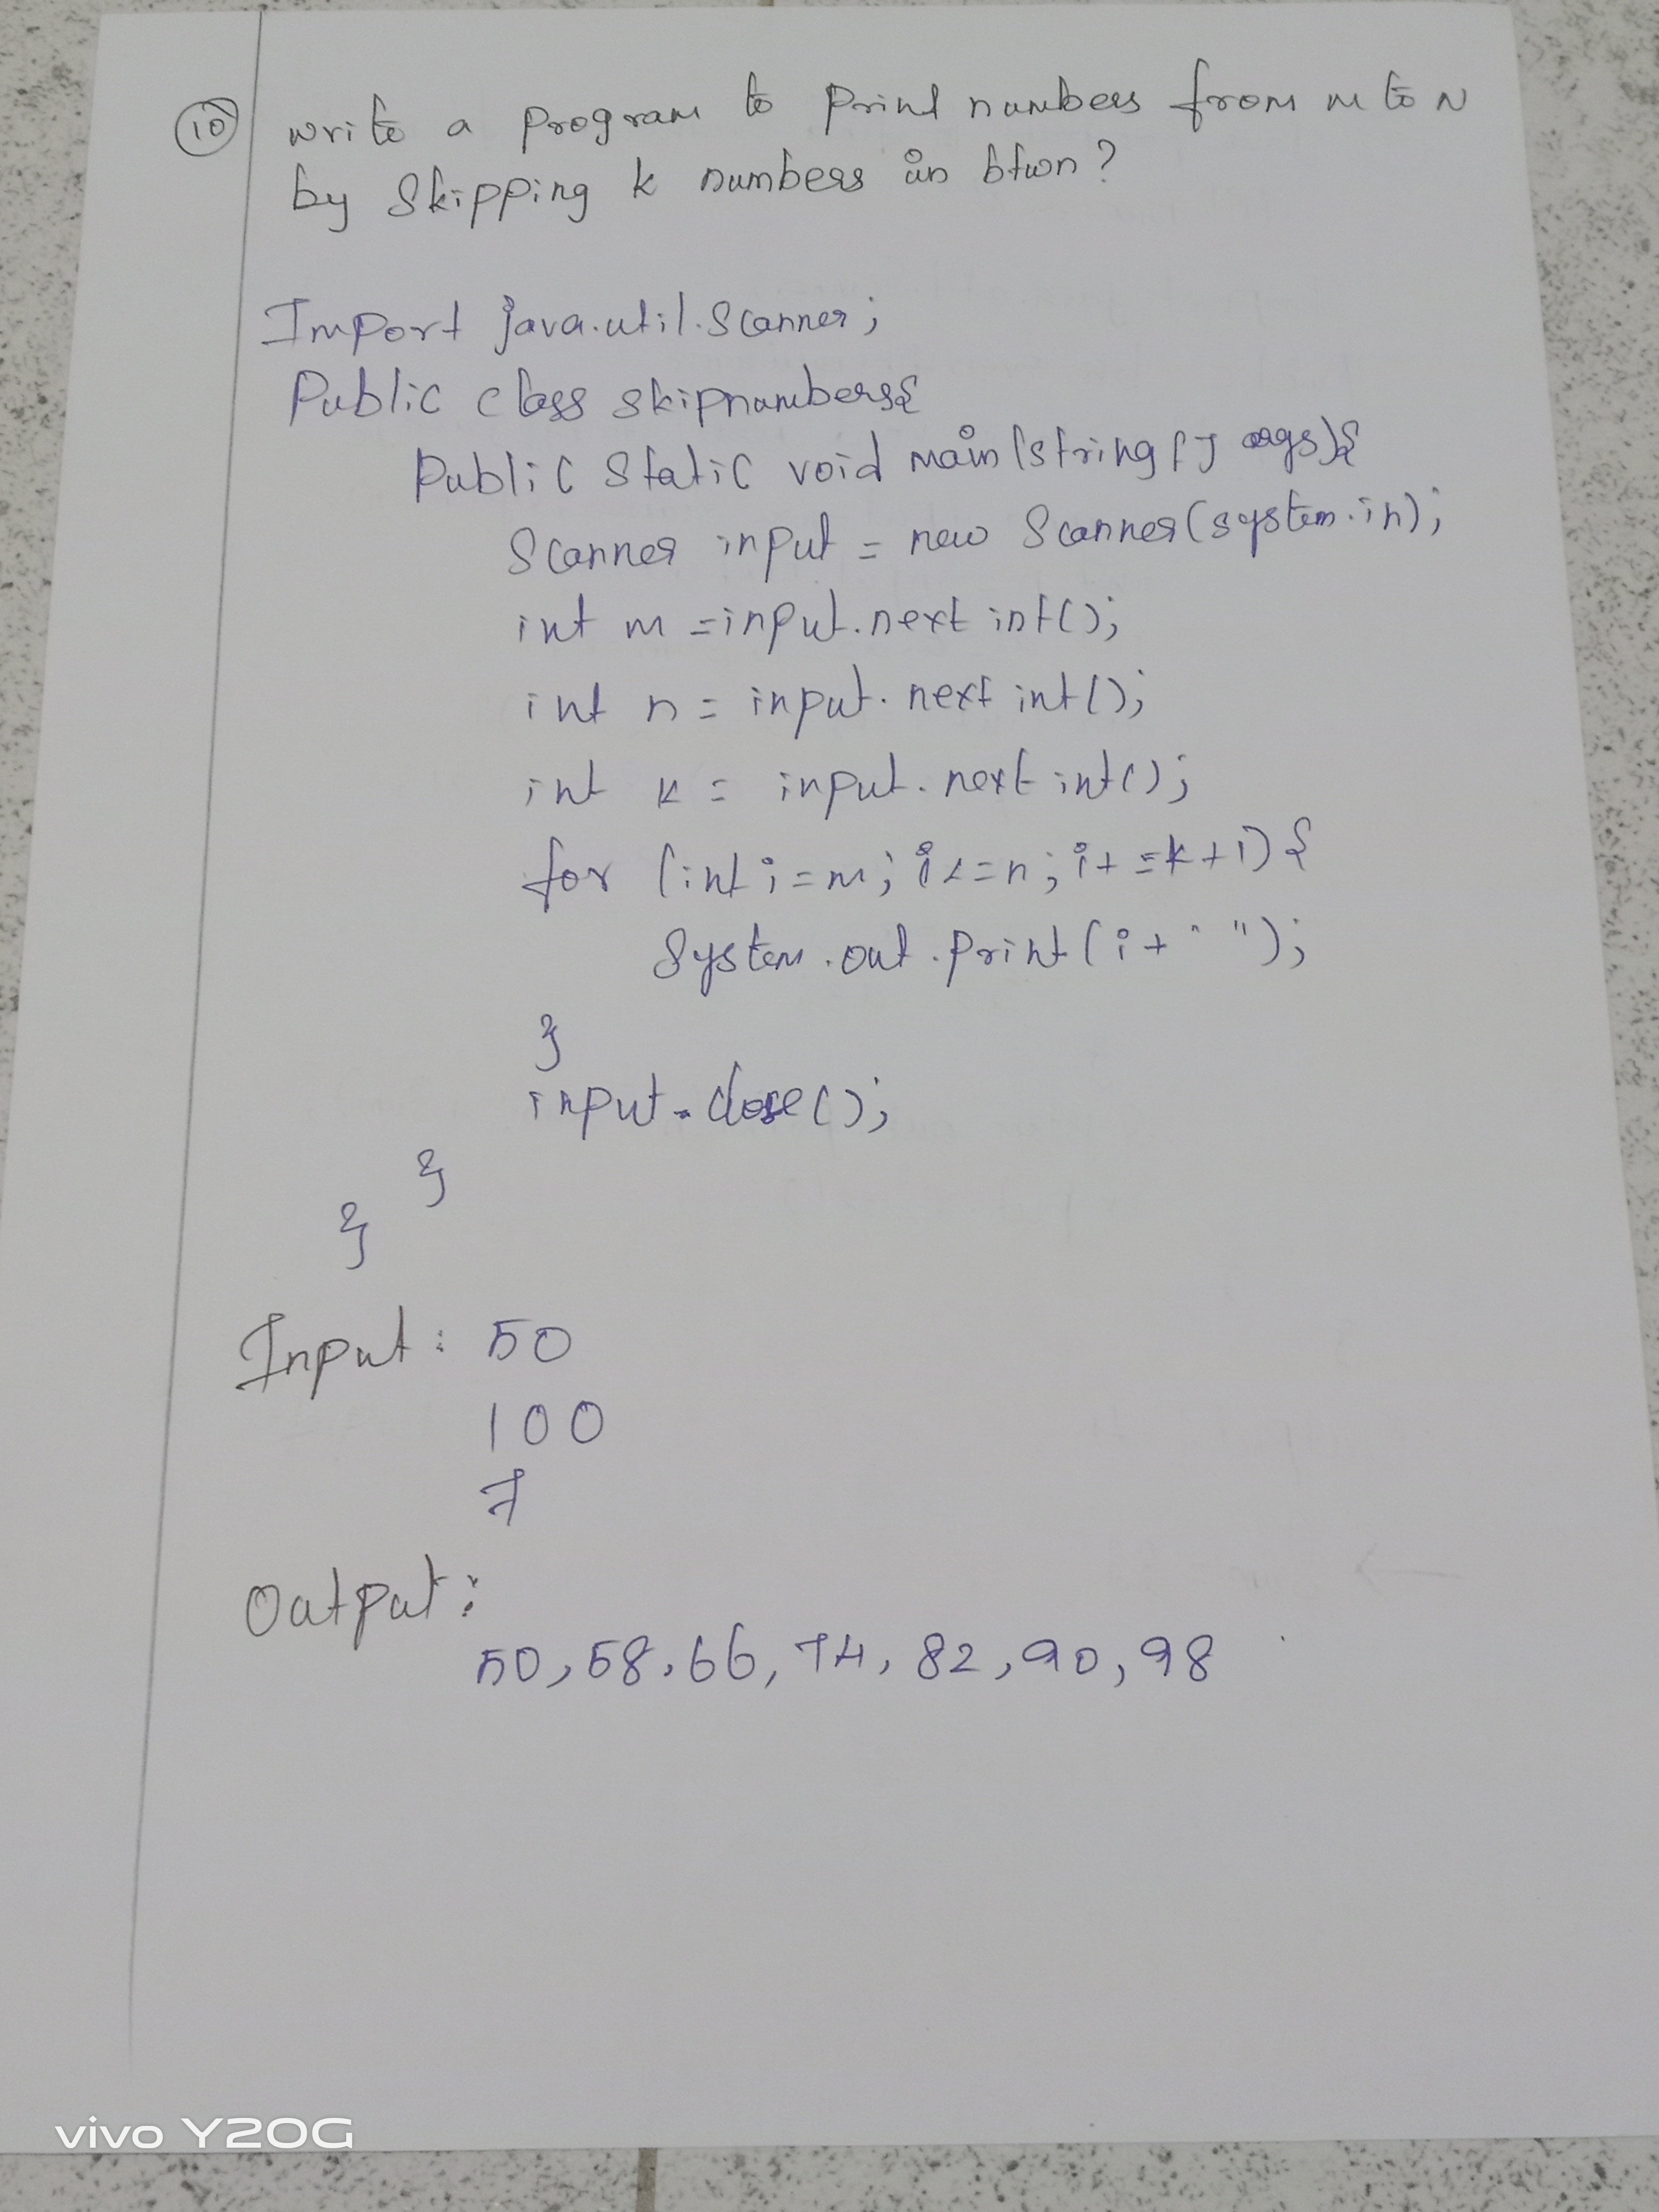 10 write a program to print numbers from m to N
by skipping k numbers in btwn?
Import java.util.Scanner;
Public class skipnumbers{
Public static void main(string[] args){
Scanner input = new Scanner(system.in);
int m =input.next int();
int n = input. next int();
int k = input. next int();
for (int i=m; i<=n; i+=k+1) {
System.out.print(i+" ");
}
input.close();
}
}
Input: 50
100
7
Output:
50, 58, 66, 74, 82, 90, 98
vivo Y20G